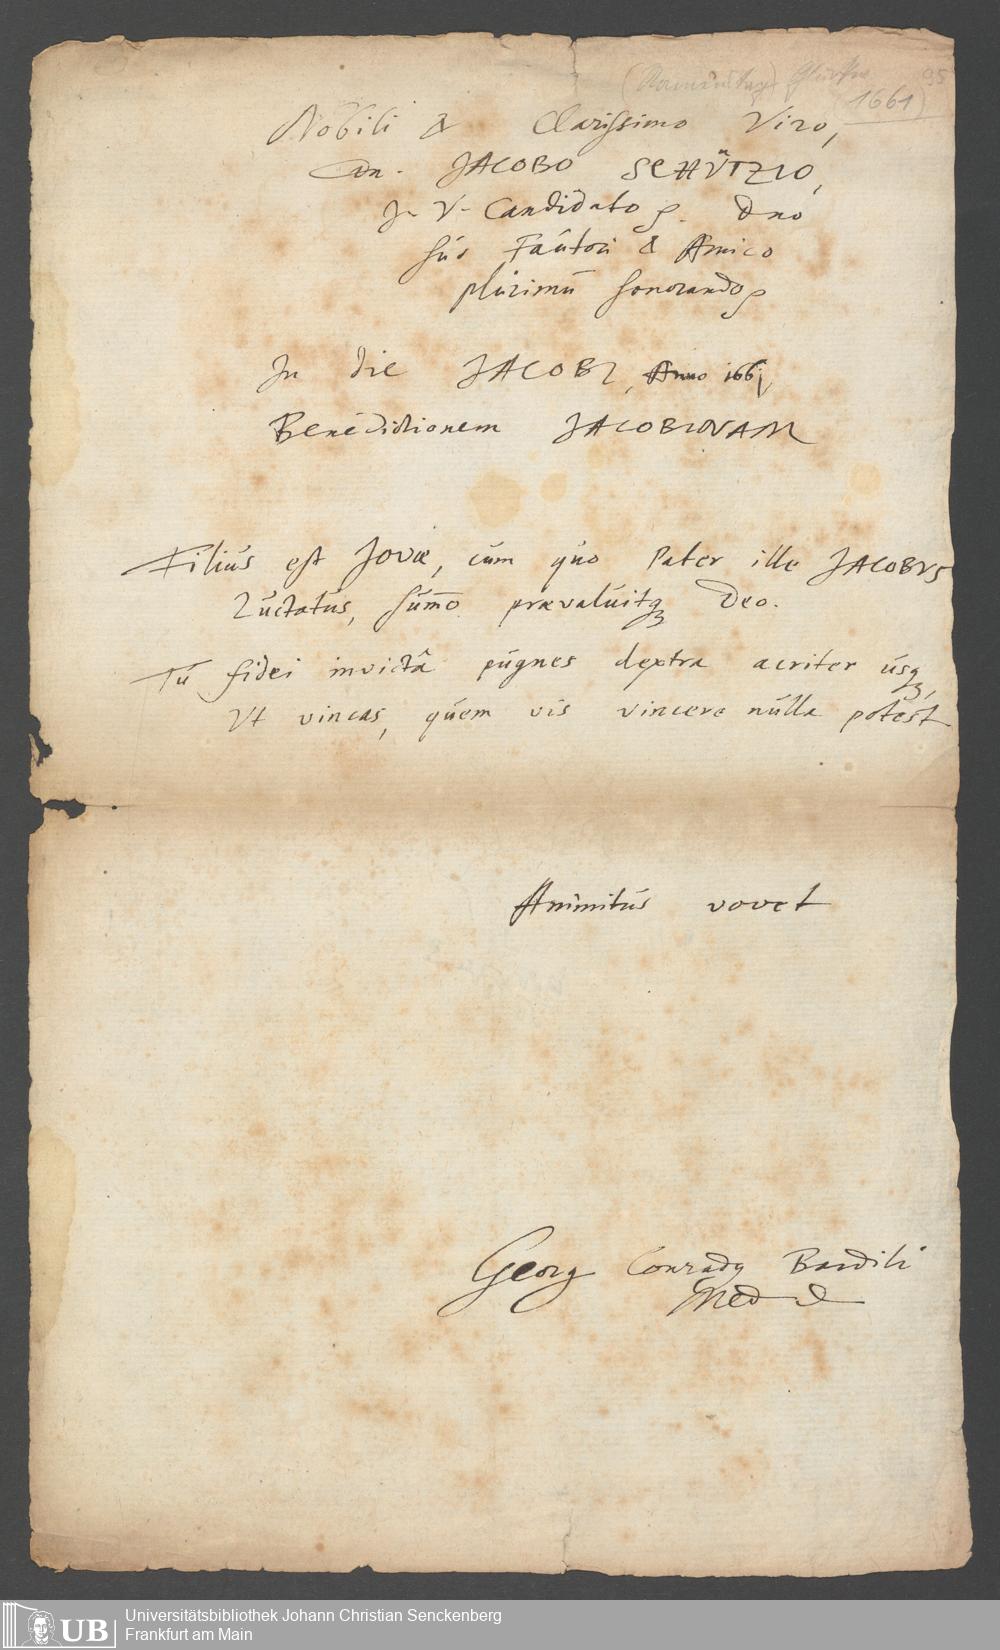 95
(Namenstag) Glückw.
1661)
Nobili & Clarissimo Viro,
Dn. JACOBO SCHÜTZIO,
J. V. Candidato p. Dno
suo Fautori & Amico
plurimū honorando p
In die JACOBI, Anno 1661
Benedictionem JACOBINAM
Filius est Jovæ, cum quo Pater ille JACOBVS
Luctatus, sum̄o prævaluitq Deo.
Tu fidei invictâ pugnes dextra acriter usq,
Vt vincas, quem vis vincere nulla potest
Animitus vovet
Georg Conrady Bardili
Med D
UB
Universitätsbibliothek Johann Christian Senckenberg
Frankfurt am Main